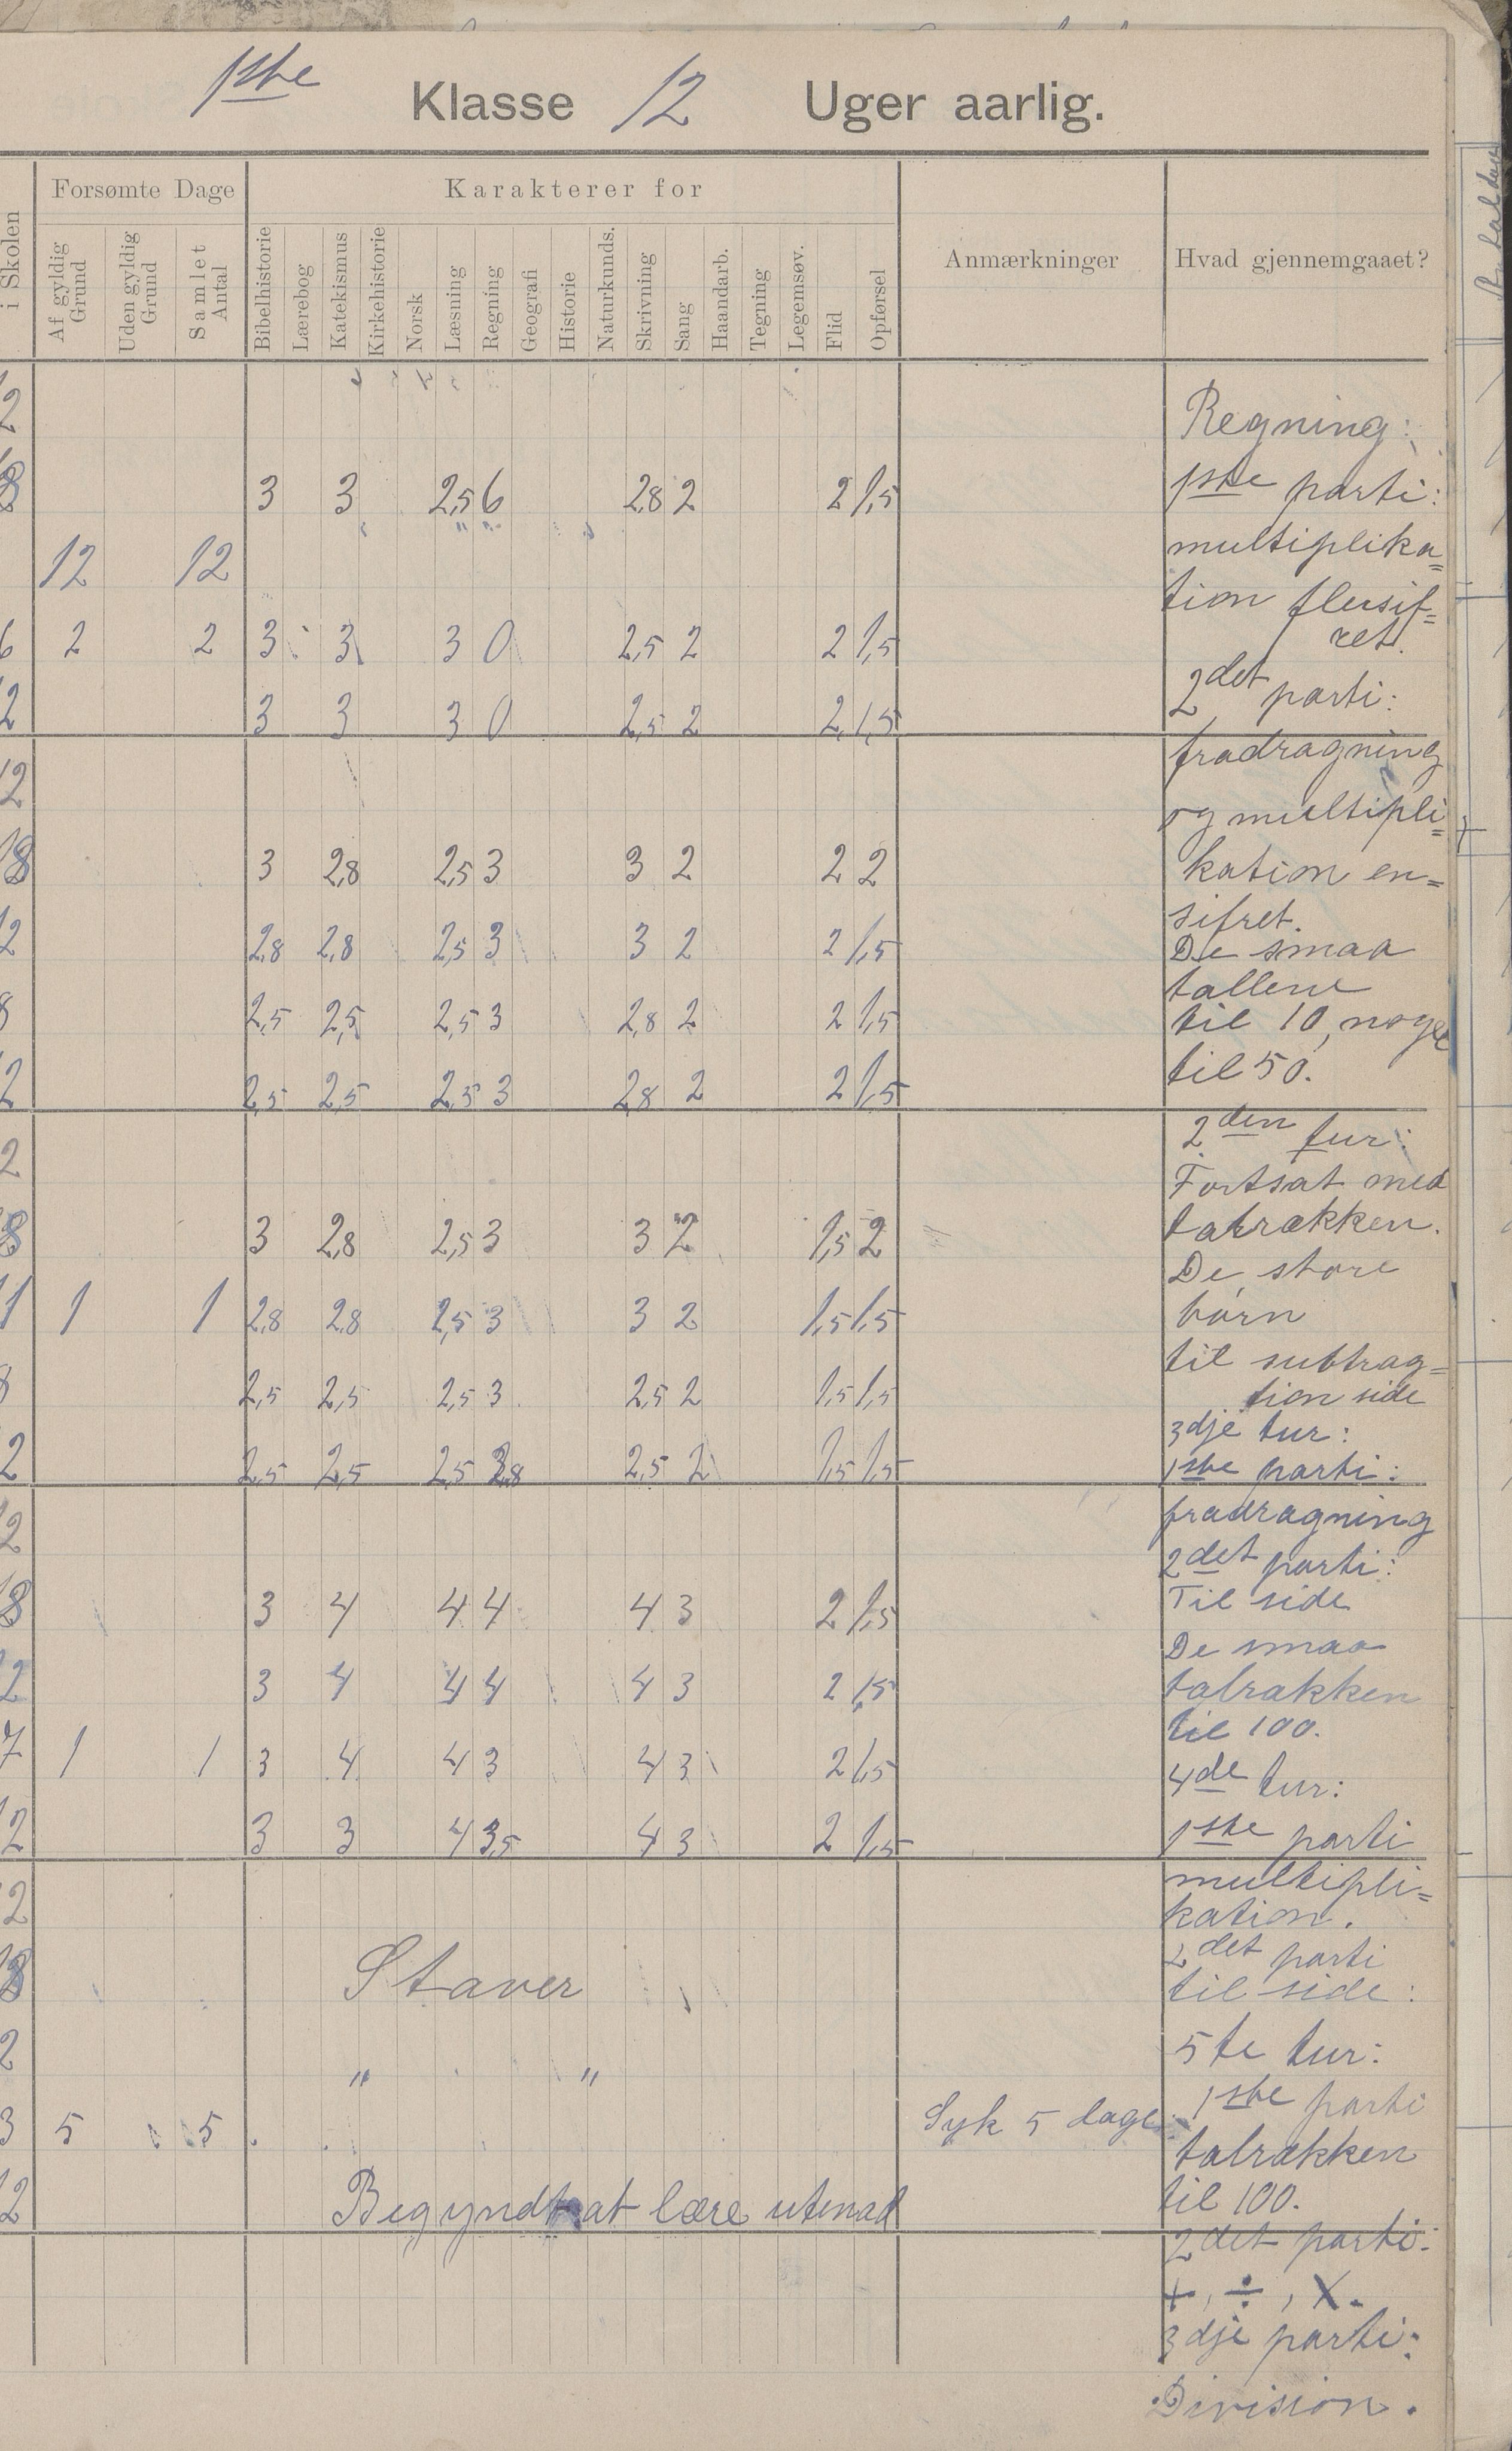 1ste Klasse 12 Uger aarlig.
i Skolen
Forsømte Dage
Karakterer for
Anmærkninger
Hvad gjennemgaaet?
Af gyldig Grund
Uden gyldig Grund
Samlet Antal
Bibelhistorie
Lærebog
Katekismus
Kirkehistorie
Norsk
Læsning
Regning
Geografi
Historie
Naturkunds.
Skrivning
Sang
Haandarb.
Tegning
Legemsøv.
Flid
Opførsel
2
8 3 3 2,5 6 2,8 2 2 1,5
12 12
6 2 2 3 3 3 0 2,5 2 2 1,5
2 3 3 3 0 2,5 2 2 1,5
12
18 3 2,8 2,5 3 3 2 2 2
2 2,8 2,8 2,5 3 3 2 2 1,5
8 2,5 2,5 2,5 3 2,8 2 2 1,5
2 2,5 2,5 2,5 3 2,8 2 2 1,5
2
8 3 2,8 2,5 3 3 2 1,5 2
1 1 1 2,8 2,8 2,5 3 3 2 1,5 1,5
8 2,5 2,5 2,5 3 2,5 2 1,5 1,5
2 2,5 2,5 2,5 2,8 2,5 2 1,5 1,5
2
8 3 4 4 4 4 3 2 1,5
2 3 4 4 4 4 3 2 1,5
7 1 1 3 4 4 3 4 3 2 1,5
2 3 3 4 3,5 4 3 2 1,5
2
8 Staver
2 " "
3 5 5 Syk 5 dage
2 Begyndt at lære utenad
Regning:
1ste parti:
multiplika=
tion flersif=
ret.
2det parti:
fradragning
og multipli=
kation en=
sifret.
De smaa
tallene
til 10, noget
til 50.
2den tur:
Fortsat med
talrækken.
De store
børn
til subtrag=
tion side
3dje tur:
1ste parti:
fradragning
2det parti:
Til side
De smaa
talrækken
til 100.
4de tur:
1ste parti
multipli=
kation.
2det parti
til side:
5te tur:
1ste parti
talrækken
til 100.
2det parti:
+, ÷, X.
3dje parti:
Division.